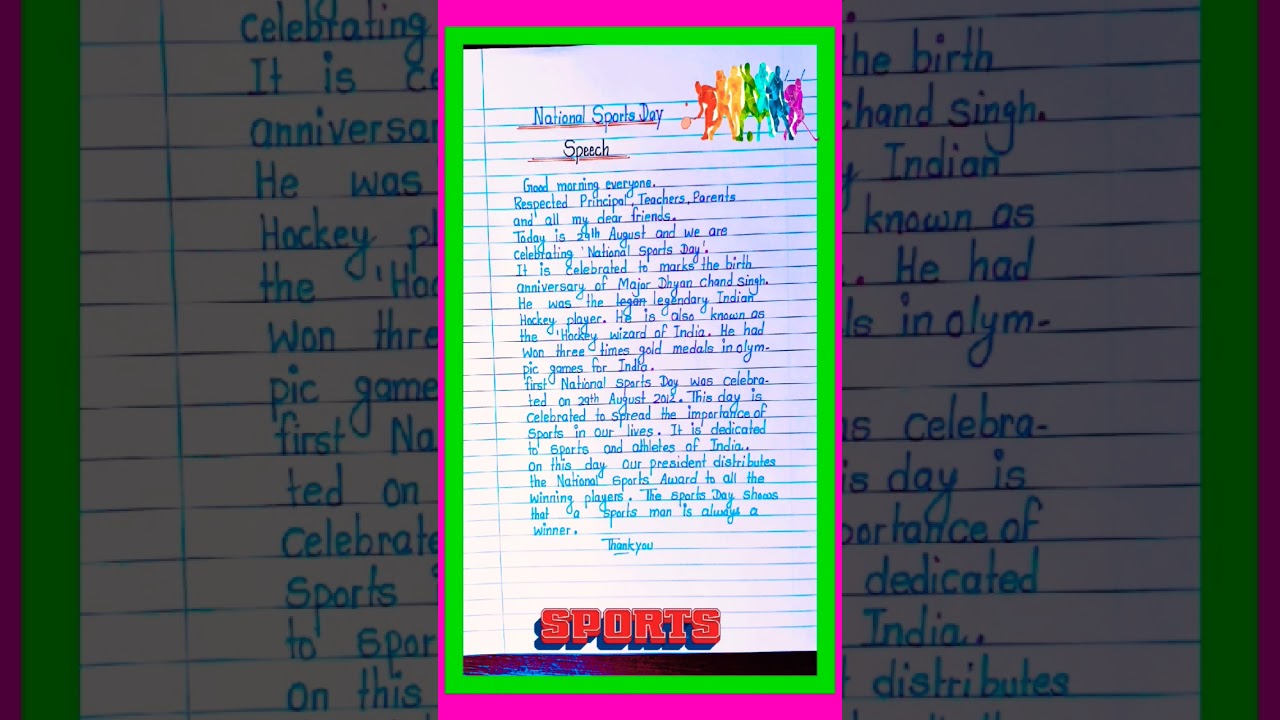 National Sports Day
Speech
Good morning everyone.
Respected Principal, Teachers, Parents
and all my dear friends.
Today is 29th August and we are
celebrating 'National Sports Day'.
It is celebrated to marks the birth
anniversary of Major Dhyan Chand Singh.
He was the legan legendary Indian
Hockey player. He is also known as
the 'Hockey wizard of India. He had
won three times gold medals in olym-
pic games for India.
first National Sports Day was celebra-
ted on 29th August 2012. This day is
celebrated to spread the importance of
Sports in our lives. It is dedicated
to sports and athletes of India.
on this day our president distributes
the National Sports Award to all the
winning players. The Sports Day shows
that a sports man is always a
winner.
Thank you
SPORTS
celebrating
It is ce
anniversar
He was
Hockey pl
the 'Hoc
won thre
pic game
first Na
ted on
Celebrate
Sports
to spor
on this
the birth
chand singh.
y Indian
known as
. He had
ls in olym-
as celebra-
is day is
portance of
dedicated
India.
distributes